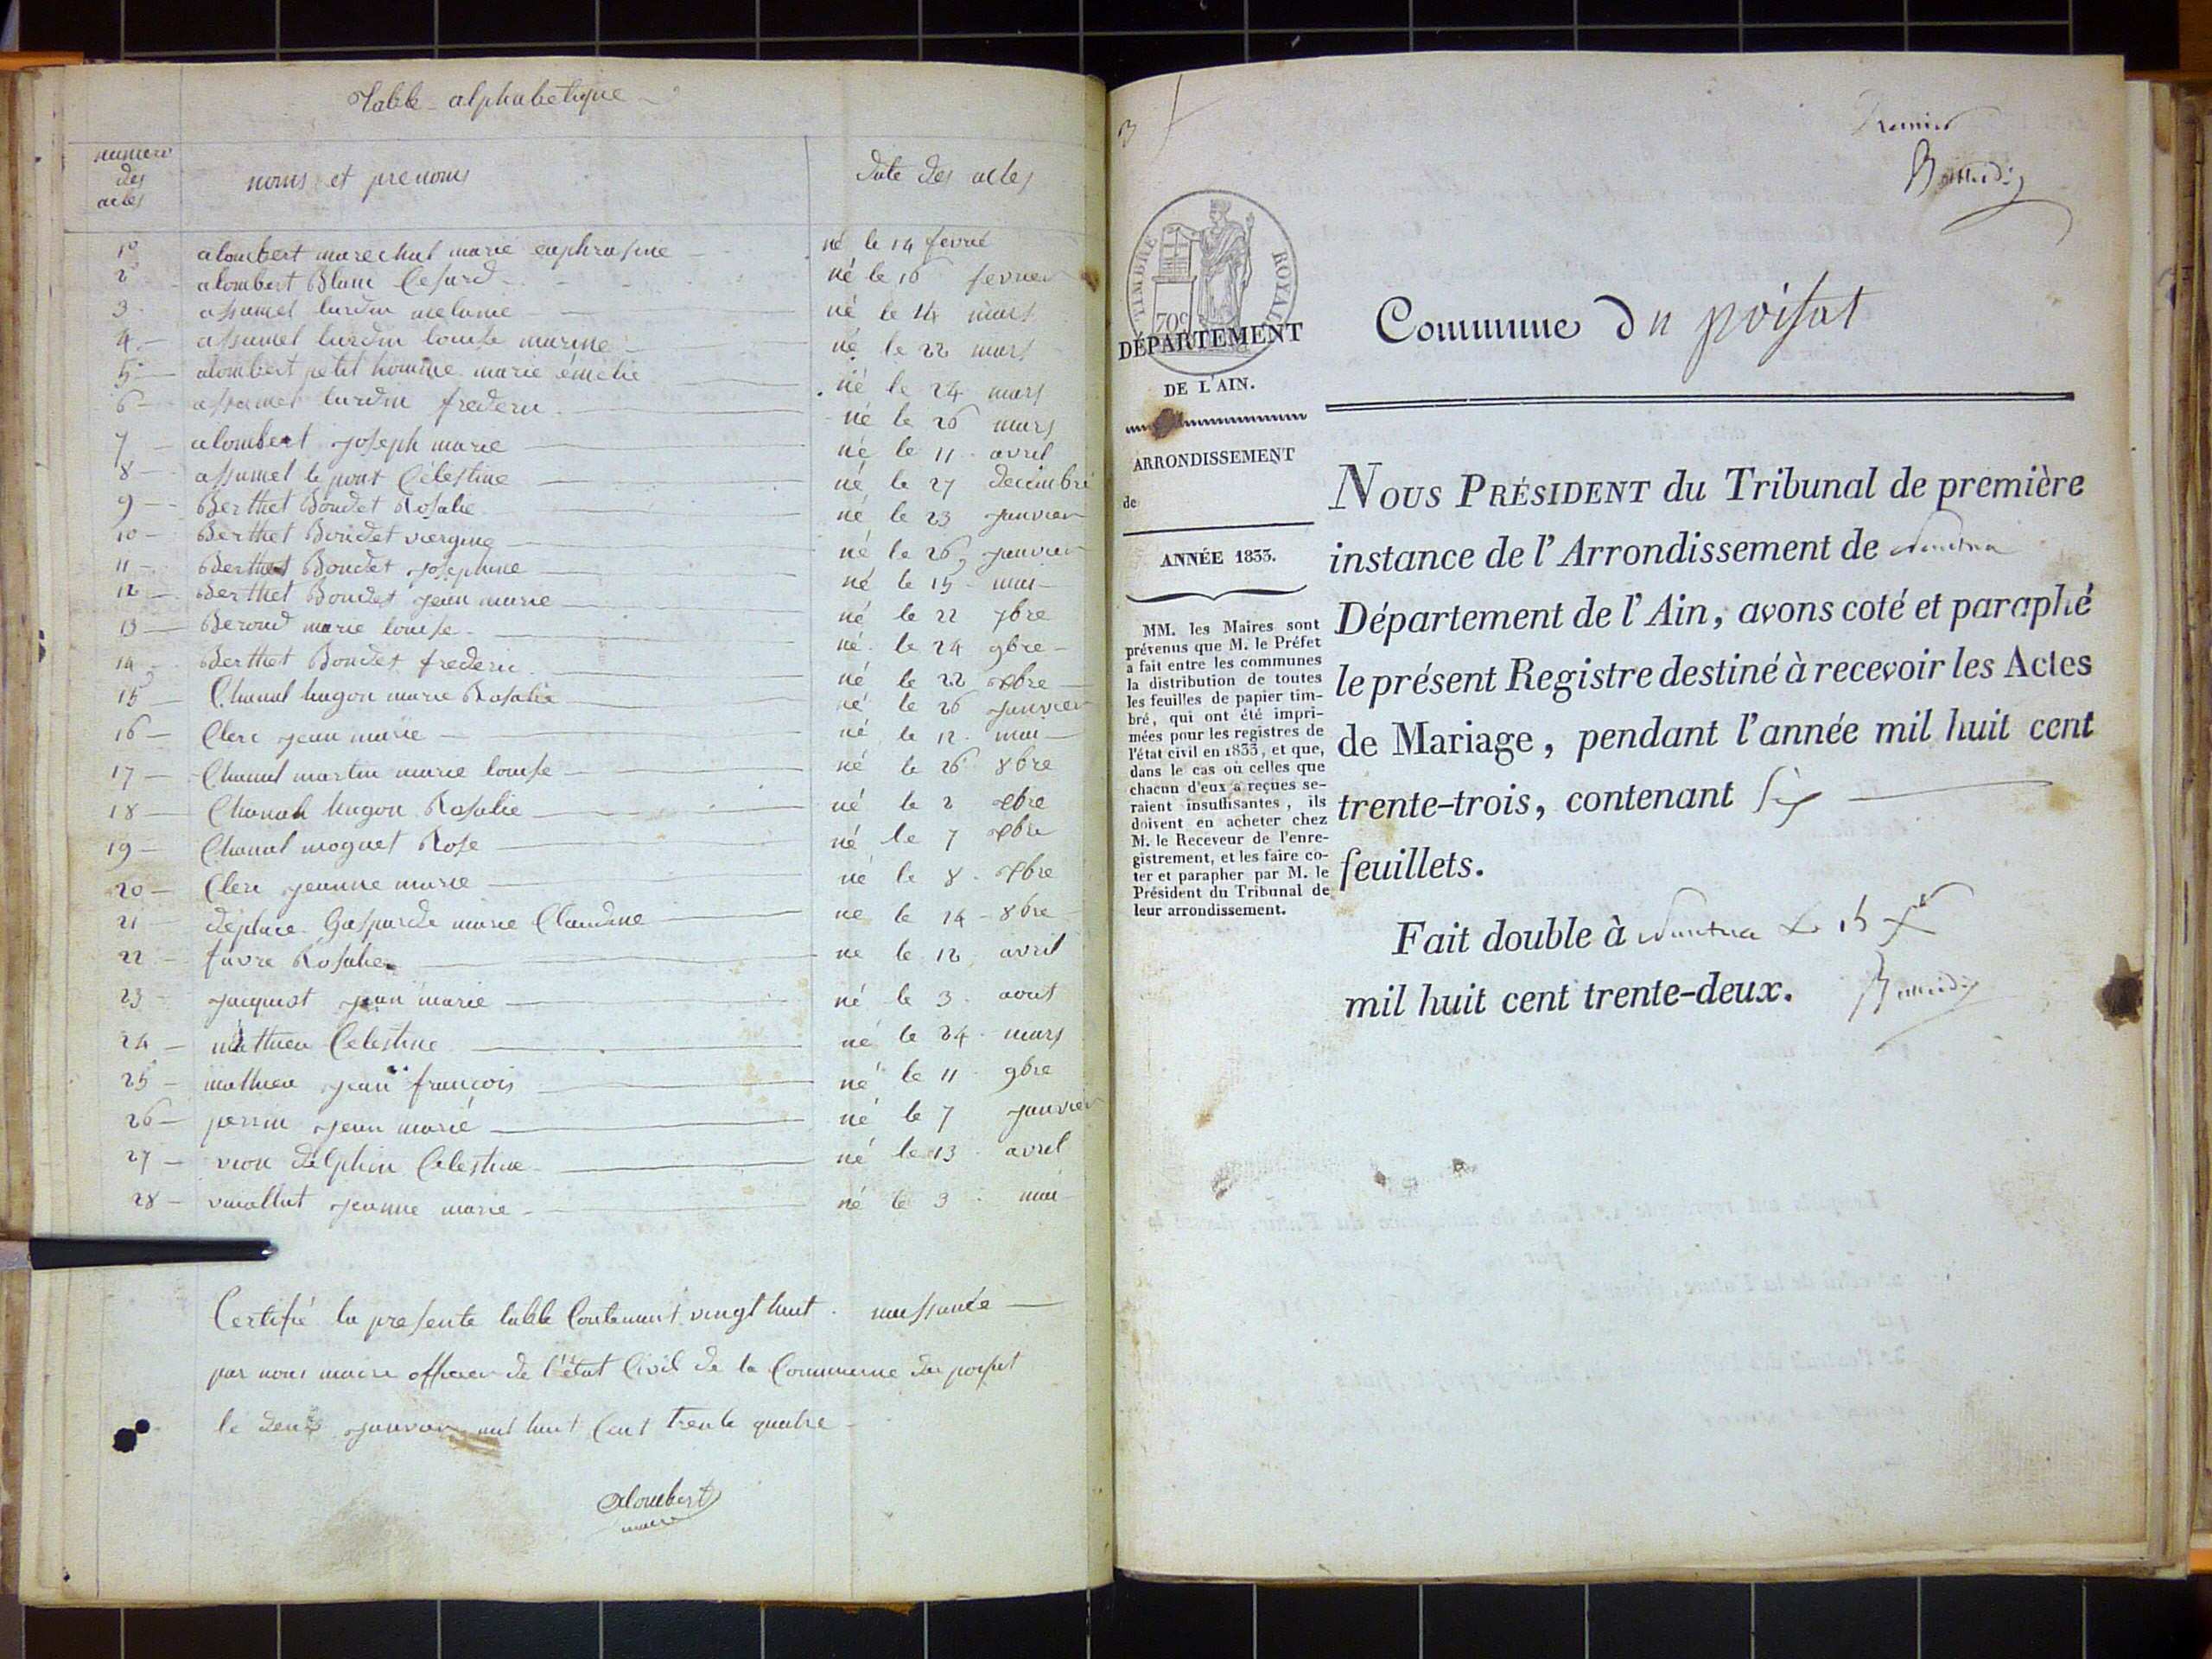 Table alphabetique
numero
des
actes
noms et prenoms
date des actes
1º alombert marechal marie euphrasine né le 14 fevrié
2 alombert Blanc Cesard né le 16 fevrier
3 assumel lurdin melanie né le 14 mars
4 assumel lurdin louise marine né le 22 mars
5 alombert petit homme marie émélie né le 24 mars
6 assumel lurdin frederic né le 26 mars
7 alombert joseph marie né le 11 avril
8 assumel le pont Célestine né le 27 decembre
9 Berthet Boudet Rosalie né le 23 janvier
10 Berthet Boudet viergine né le 26 janvier
11 Berthet Boudet josephine né le 15 mai
12 Berthet Boudet jean marie né le 22 7bre
13 Beroud marie louise né le 24 9bre
14 Berthet Boudet frederic né le 22 xbre
15 Chanal hugon marie Rosalie né le 26 janvier
16 Clerc jean marie né le 12 mai
17 Chanal martin marie louise né le 26 8bre
18 Chanal hugon Rosalie né le 2 xbre
19 Chanal moguet Rose né le 7 xbre
20 Clerc jeanne marie né le 8 xbre
21 déplace Gasparde marie Claudine né le 14 8bre
22 favre Rosalie né le 12 avril
23 jacquiot jean marie né le 3 aout
24 mathieu Celestine né le 24 mars
25 mathieu jean françois né le 11 9bre
26 perrin jean marié né le 7 janvier
27 vion delphin Celestine né le 13 avril
28 vuaillat jeanne marie né le 3 mai
Certifié la presente table Contenant vingt huit naissance
par nous maire officier de l'état Civil de la Commune du poisat
le deux janvier mil huit Cent trente quatre
Alombert
maire
3
Premier
TIMBRE ROYAL
70c
DÉPARTEMENT
DE L'AIN.
ARRONDISSEMENT
de
ANNÉE 1833.
MM. les Maires sont
prévenus que M. le Préfet
a fait entre les communes
la distribution de toutes
les feuilles de papier tim-
bré, qui ont été impri-
mées pour les registres de
l'état civil en 1833, et que,
dans le cas où celles que
chacun d'eux a reçues se-
raient insuffisantes, ils
doivent en acheter chez
M. le Receveur de l'enre-
gistrement, et les faire co-
ter et parapher par M. le
Président du Tribunal de
leur arrondissement.
Commune du poisat
NOUS PRÉSIDENT du Tribunal de première
instance de l'Arrondissement de Nantua
Département de l'Ain, avons coté et paraphé
le présent Registre destiné à recevoir les Actes
de Mariage, pendant l'année mil huit cent
trente-trois, contenant six
feuillets.
Fait double à Nantua le 15 Xe
mil huit cent trente-deux.